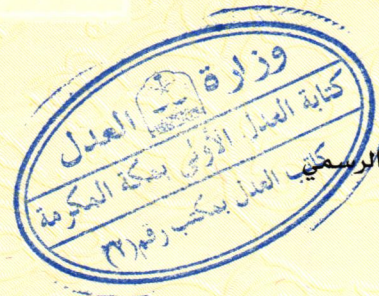 وزارة العدل
كتابة العدل الأولى بمكة المكرمة
كاتب العدل بمكتب رقم (٣٢)
الرسمي